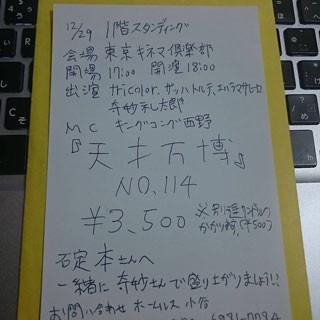 12/29 1階スタンディング
会場 東京キネマ倶楽部
開場 17:00 開演 18:00
出演 tricolor、ザッハトルテ、エハラマサヒロ
奇妙礼太郎
MC キングコング西野
『天才万博』
NO.114
¥3,500 ※別途ワンドリンク
かかります(¥500)
石定 本さんへ
一緒に 奇妙さんで盛り上がりましょう!!
お問い合わせ ホームレス小谷